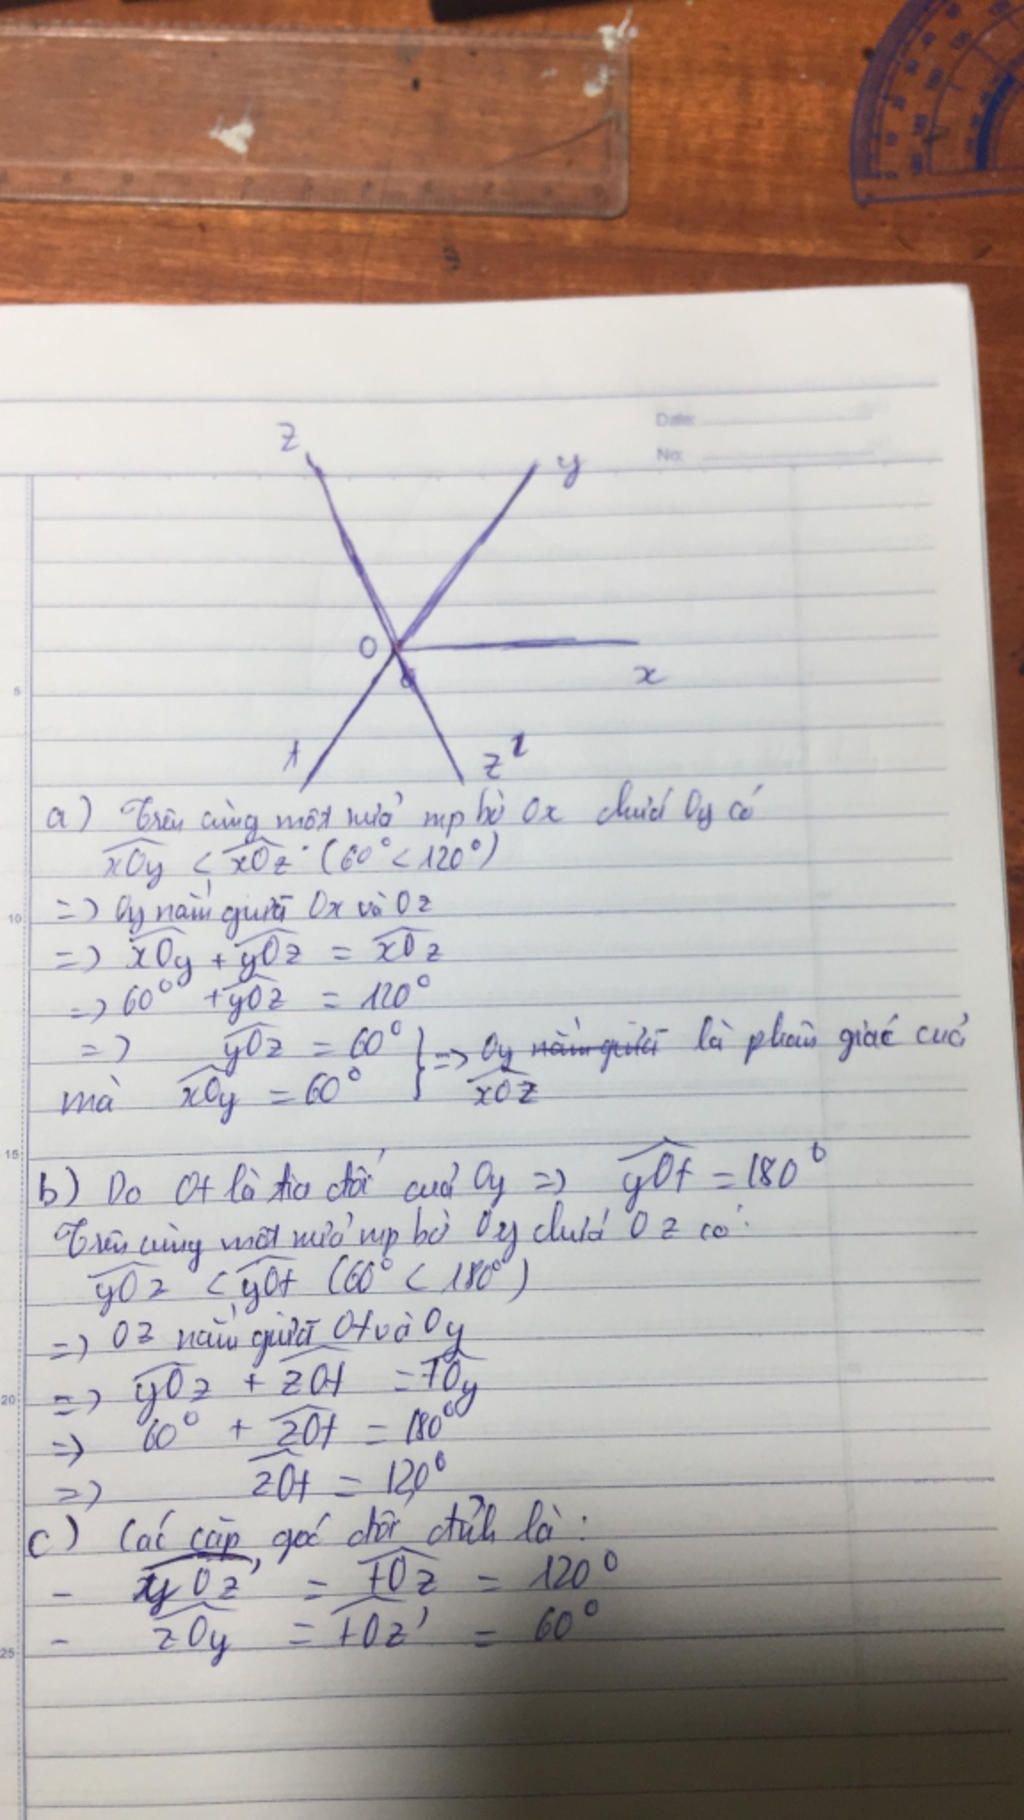 Date:
No:
z
y
O
x
t
z'
a) Trên cùng một nửa mp bờ Ox chứa Oy có
xOy < xOz (60° < 120°)
=> Oy nằm giữa Ox và Oz
=> xOy + yOz = xOz
=> 60° + yOz = 120°
=> yOz = 60°
mà xOy = 60° } => Oy nằm giữa là phân giác của
xOz
b) Do Ot là tia đối của Oy => yOt = 180°
Trên cùng một nửa mp bờ Oy chứa Oz có:
yOz < yOt (60° < 180°)
=> Oz nằm giữa Ot và Oy
=> yOz + zOt = tOy
=> 60° + zOt = 180°
=> zOt = 120°
c) Các cặp góc đối đỉnh là:
- yOz' = tOz = 120°
- zOy = tOz' = 60°
5
10
15
20
25